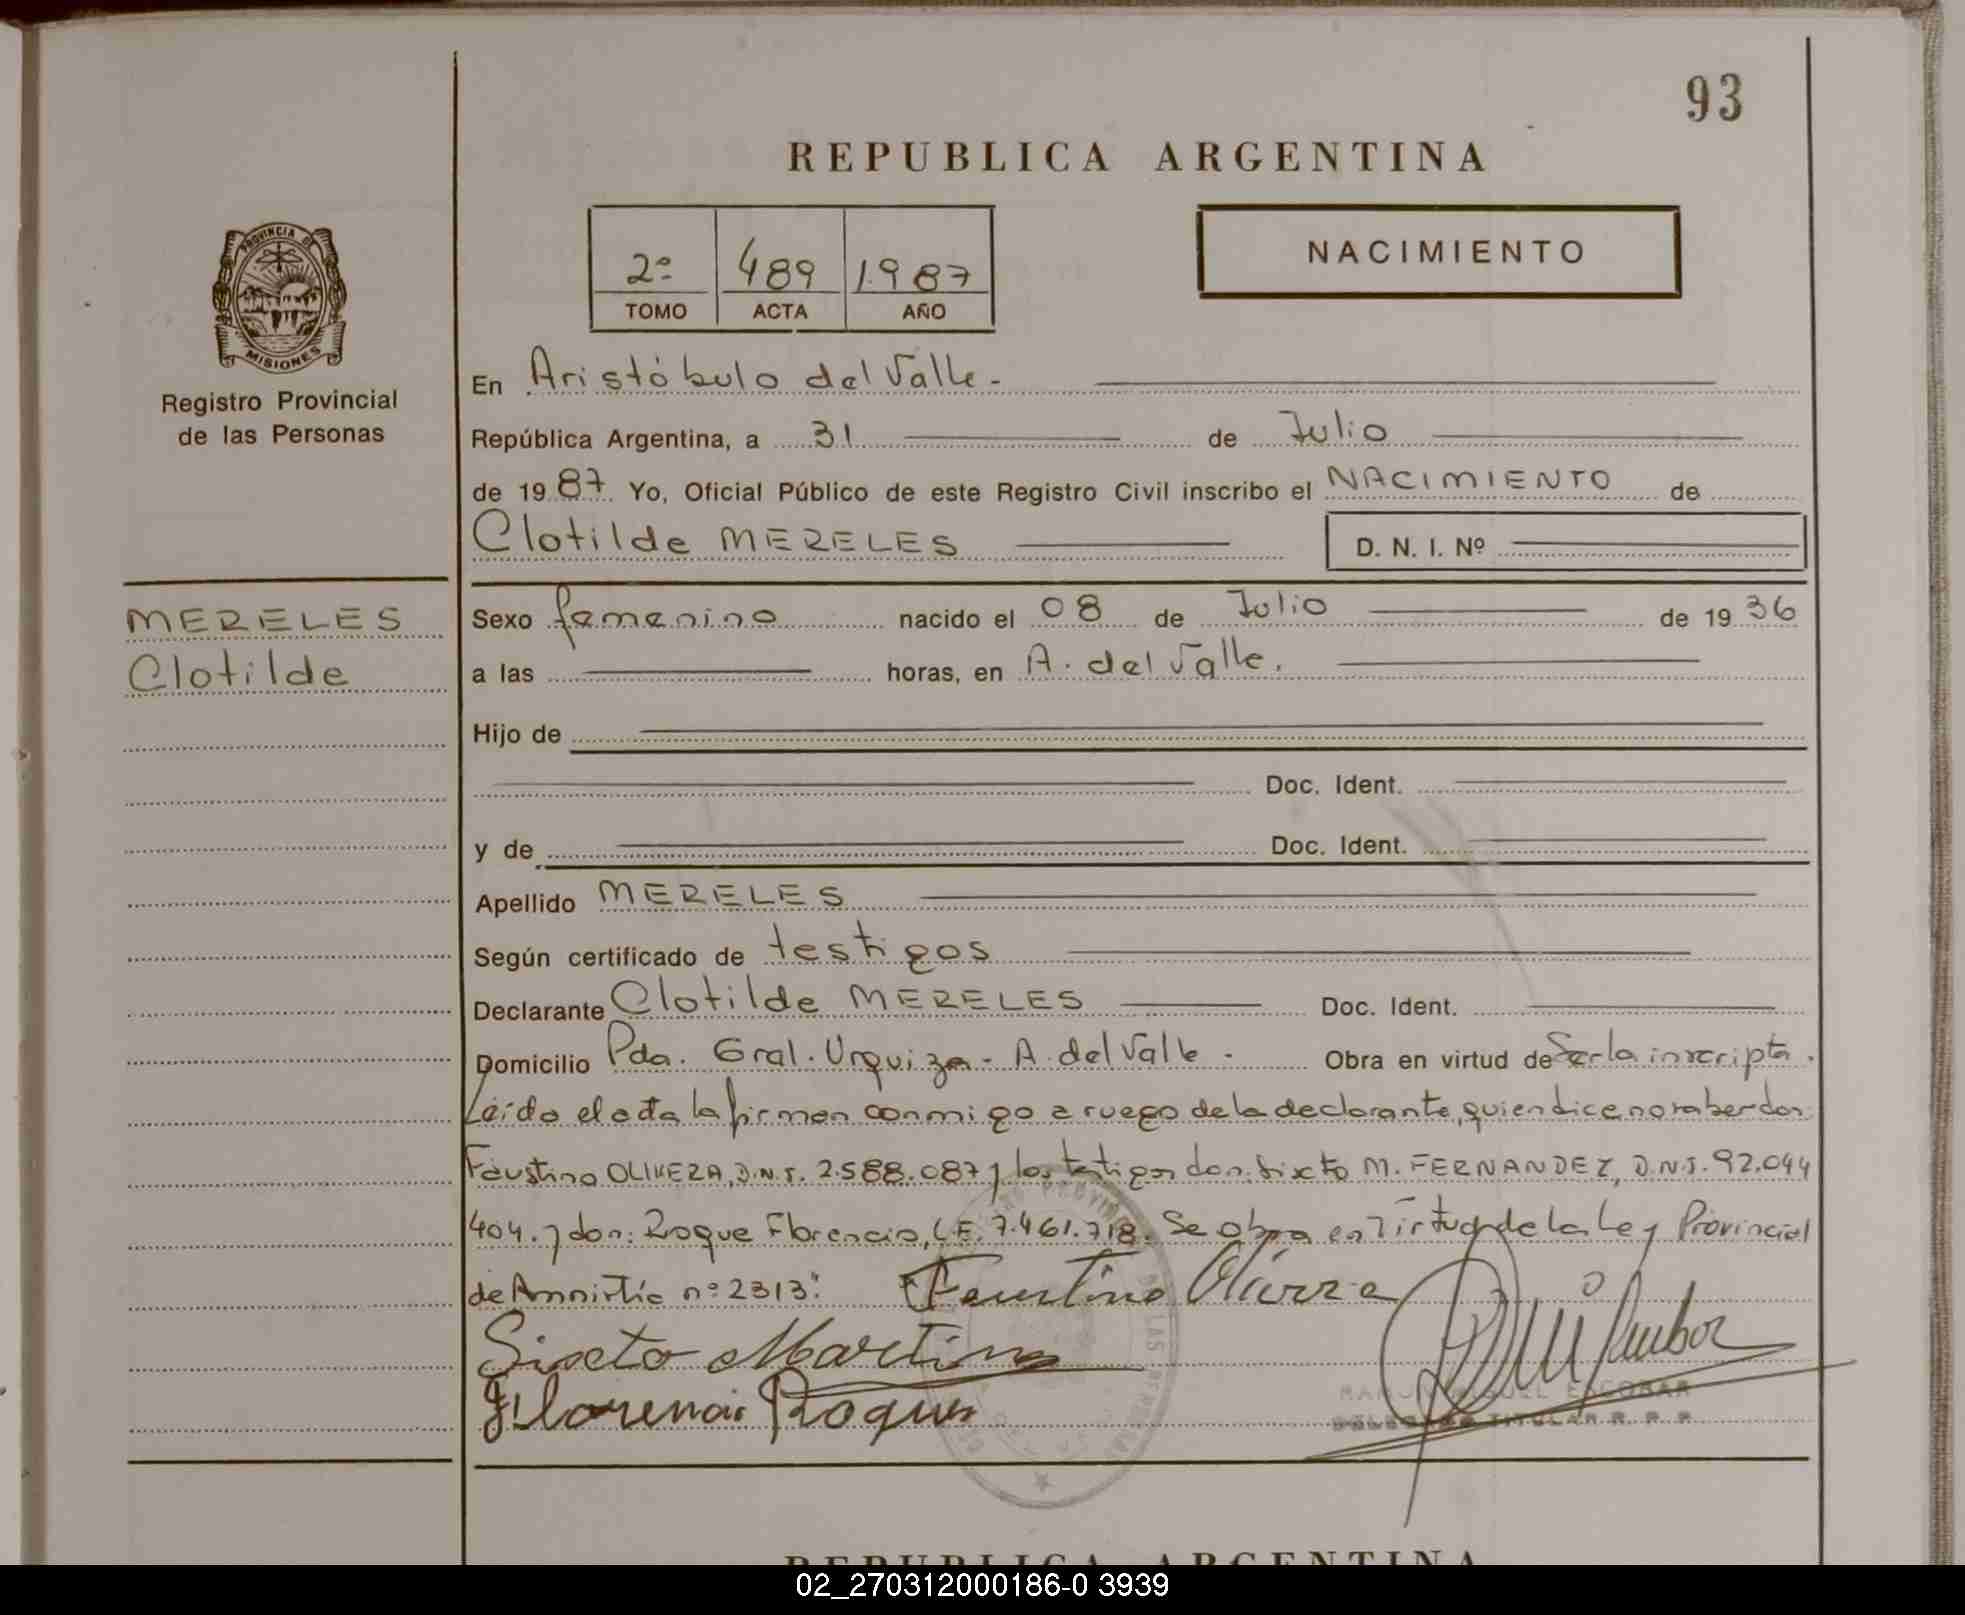 93
REPUBLICA ARGENTINA
2º 489 1987
TOMO ACTA AÑO
NACIMIENTO
PROVINCIA DE
MISIONES
Registro Provincial
de las Personas
En Aristóbulo del Valle.
República Argentina, a 31 de Julio
de 1987 Yo, Oficial Público de este Registro Civil inscribo el NACIMIENTO de
Clotilde MERELES D. N. I. Nº
MERELES
Clotilde
Sexo femenino nacido el 08 de Julio de 1936
a las horas, en A. del Valle.
Hijo de
Doc. Ident.
y de Doc. Ident.
Apellido MERELES
Según certificado de testigos
Declarante Clotilde MERELES Doc. Ident.
Domicilio Pda. Gral. Urquiza - A. del Valle. Obra en virtud de Ser la inscripta.
Leída el acta la firman conmigo a ruego de la declarante, quien dice no saber don:
Faustino OLIVERA, D.N.I. 2.588.087 y los testigos don: Sixto M. FERNANDEZ, D.N.I. 92.044
404. y don: Roque Florencio, L.E. 7.461.718. Se obra en virtud de la Ley Provincial
de Amnistía nº 2313.
Faustino Olivera
Sixto Martin
Florencio Roque
MIGUEL ESCOBAR
DELEGADO TITULAR R. P. P.
REPUBLICA ARGENTINA
02_270312000186-0 3939